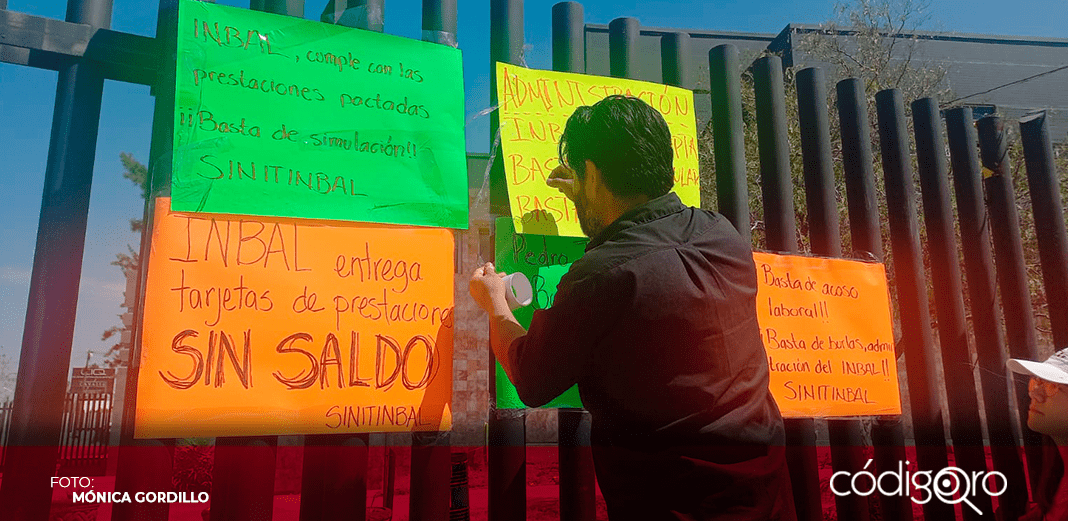 INBAL, cumple con las
prestaciones pactadas
¡¡Basta de simulación!!
SINITINBAL
INBAL entrega
tarjetas de prestaciones
SIN SALDO
SINITINBAL
ADMINISTRACIÓN
INB
BAST
BASTA
Pedro
Basta de acoso
laboral!!
¡Basta de burlas, admi
tración del INBAL!!
SINITINBAL
FOTO:
MÓNICA GORDILLO
códigoQro